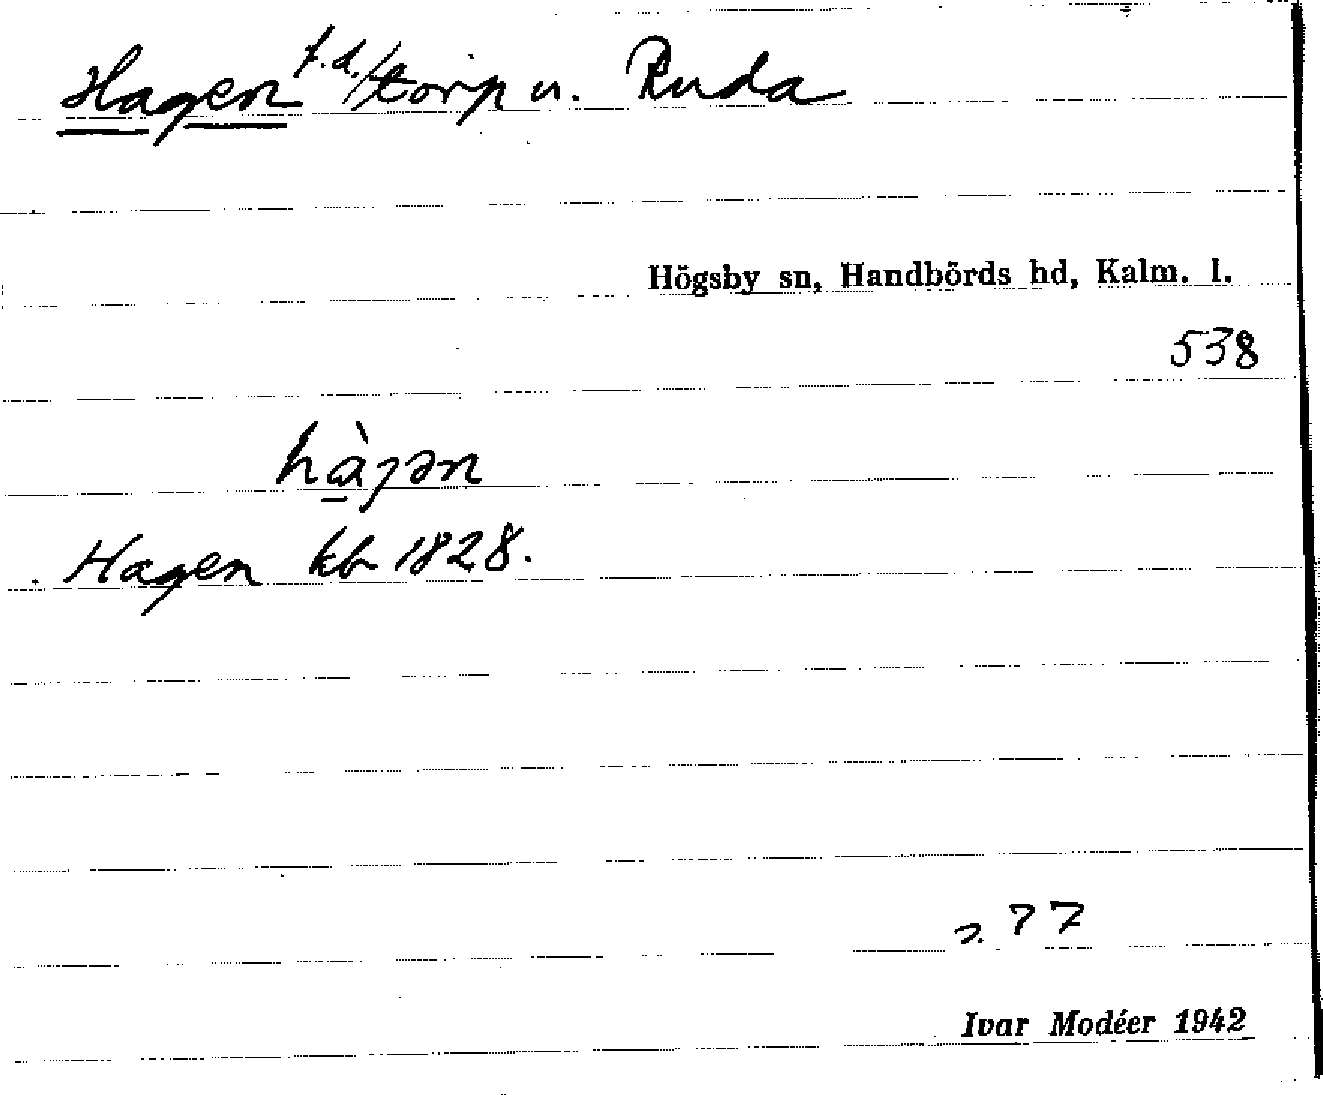 Hagen f.d. torp u. Ruda
Högsby sn, Handbörds hd, Kalm. l.
538
hàgən
Hagen kb 1828.
s. 77
Ivar Modéer 1942